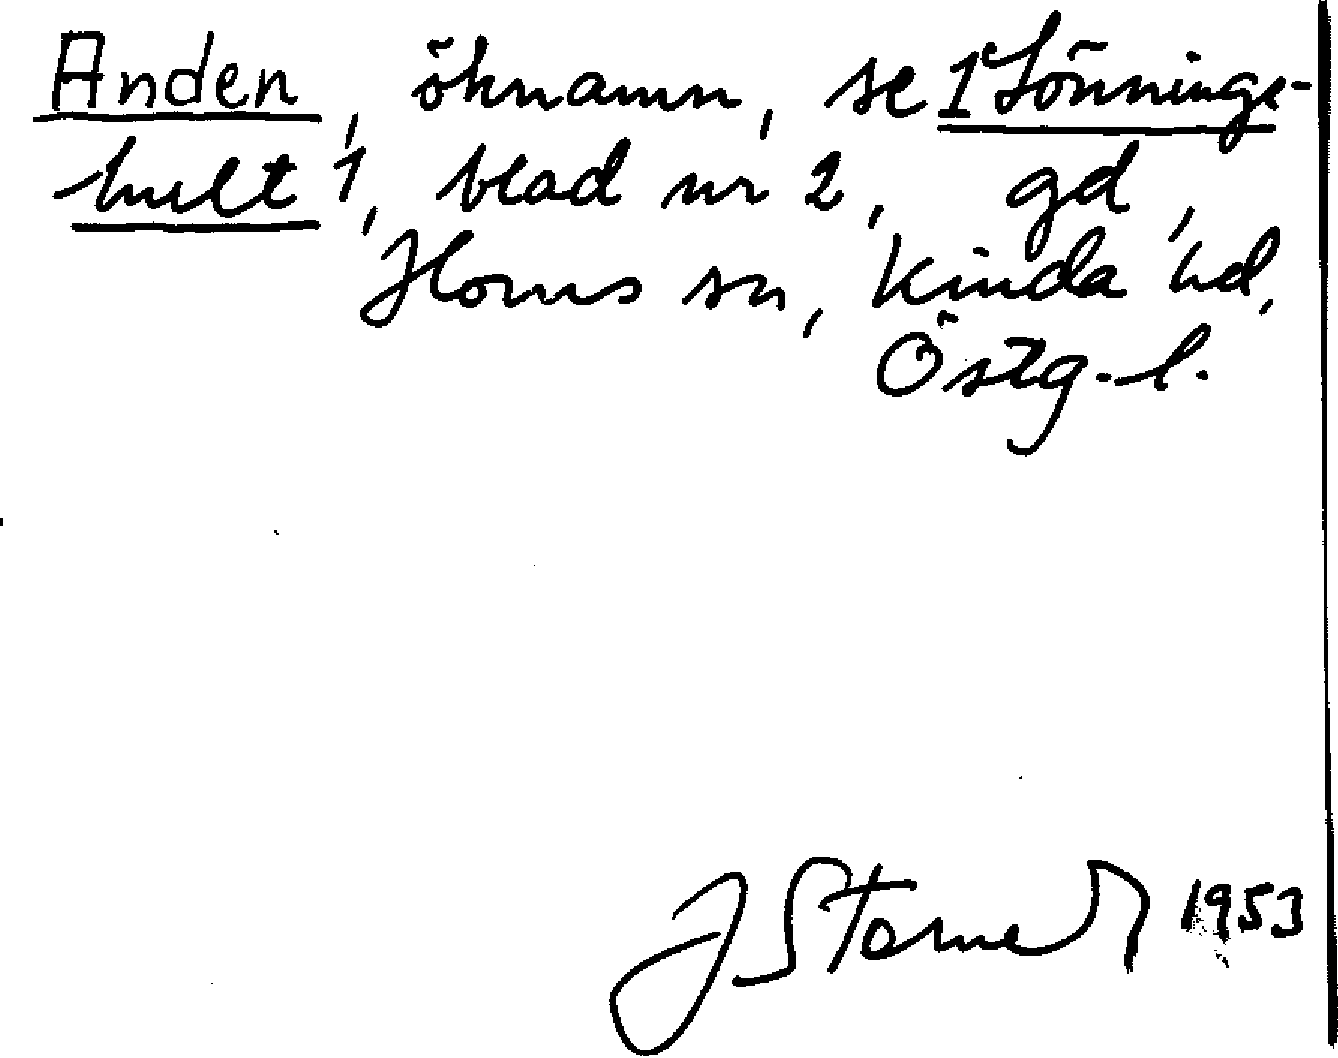 Anden, öknamn, se 1 Lönnings-
hult 1, blad nr 2, gd,
Horns sn, Kinda hd,
Östg. l.
1953